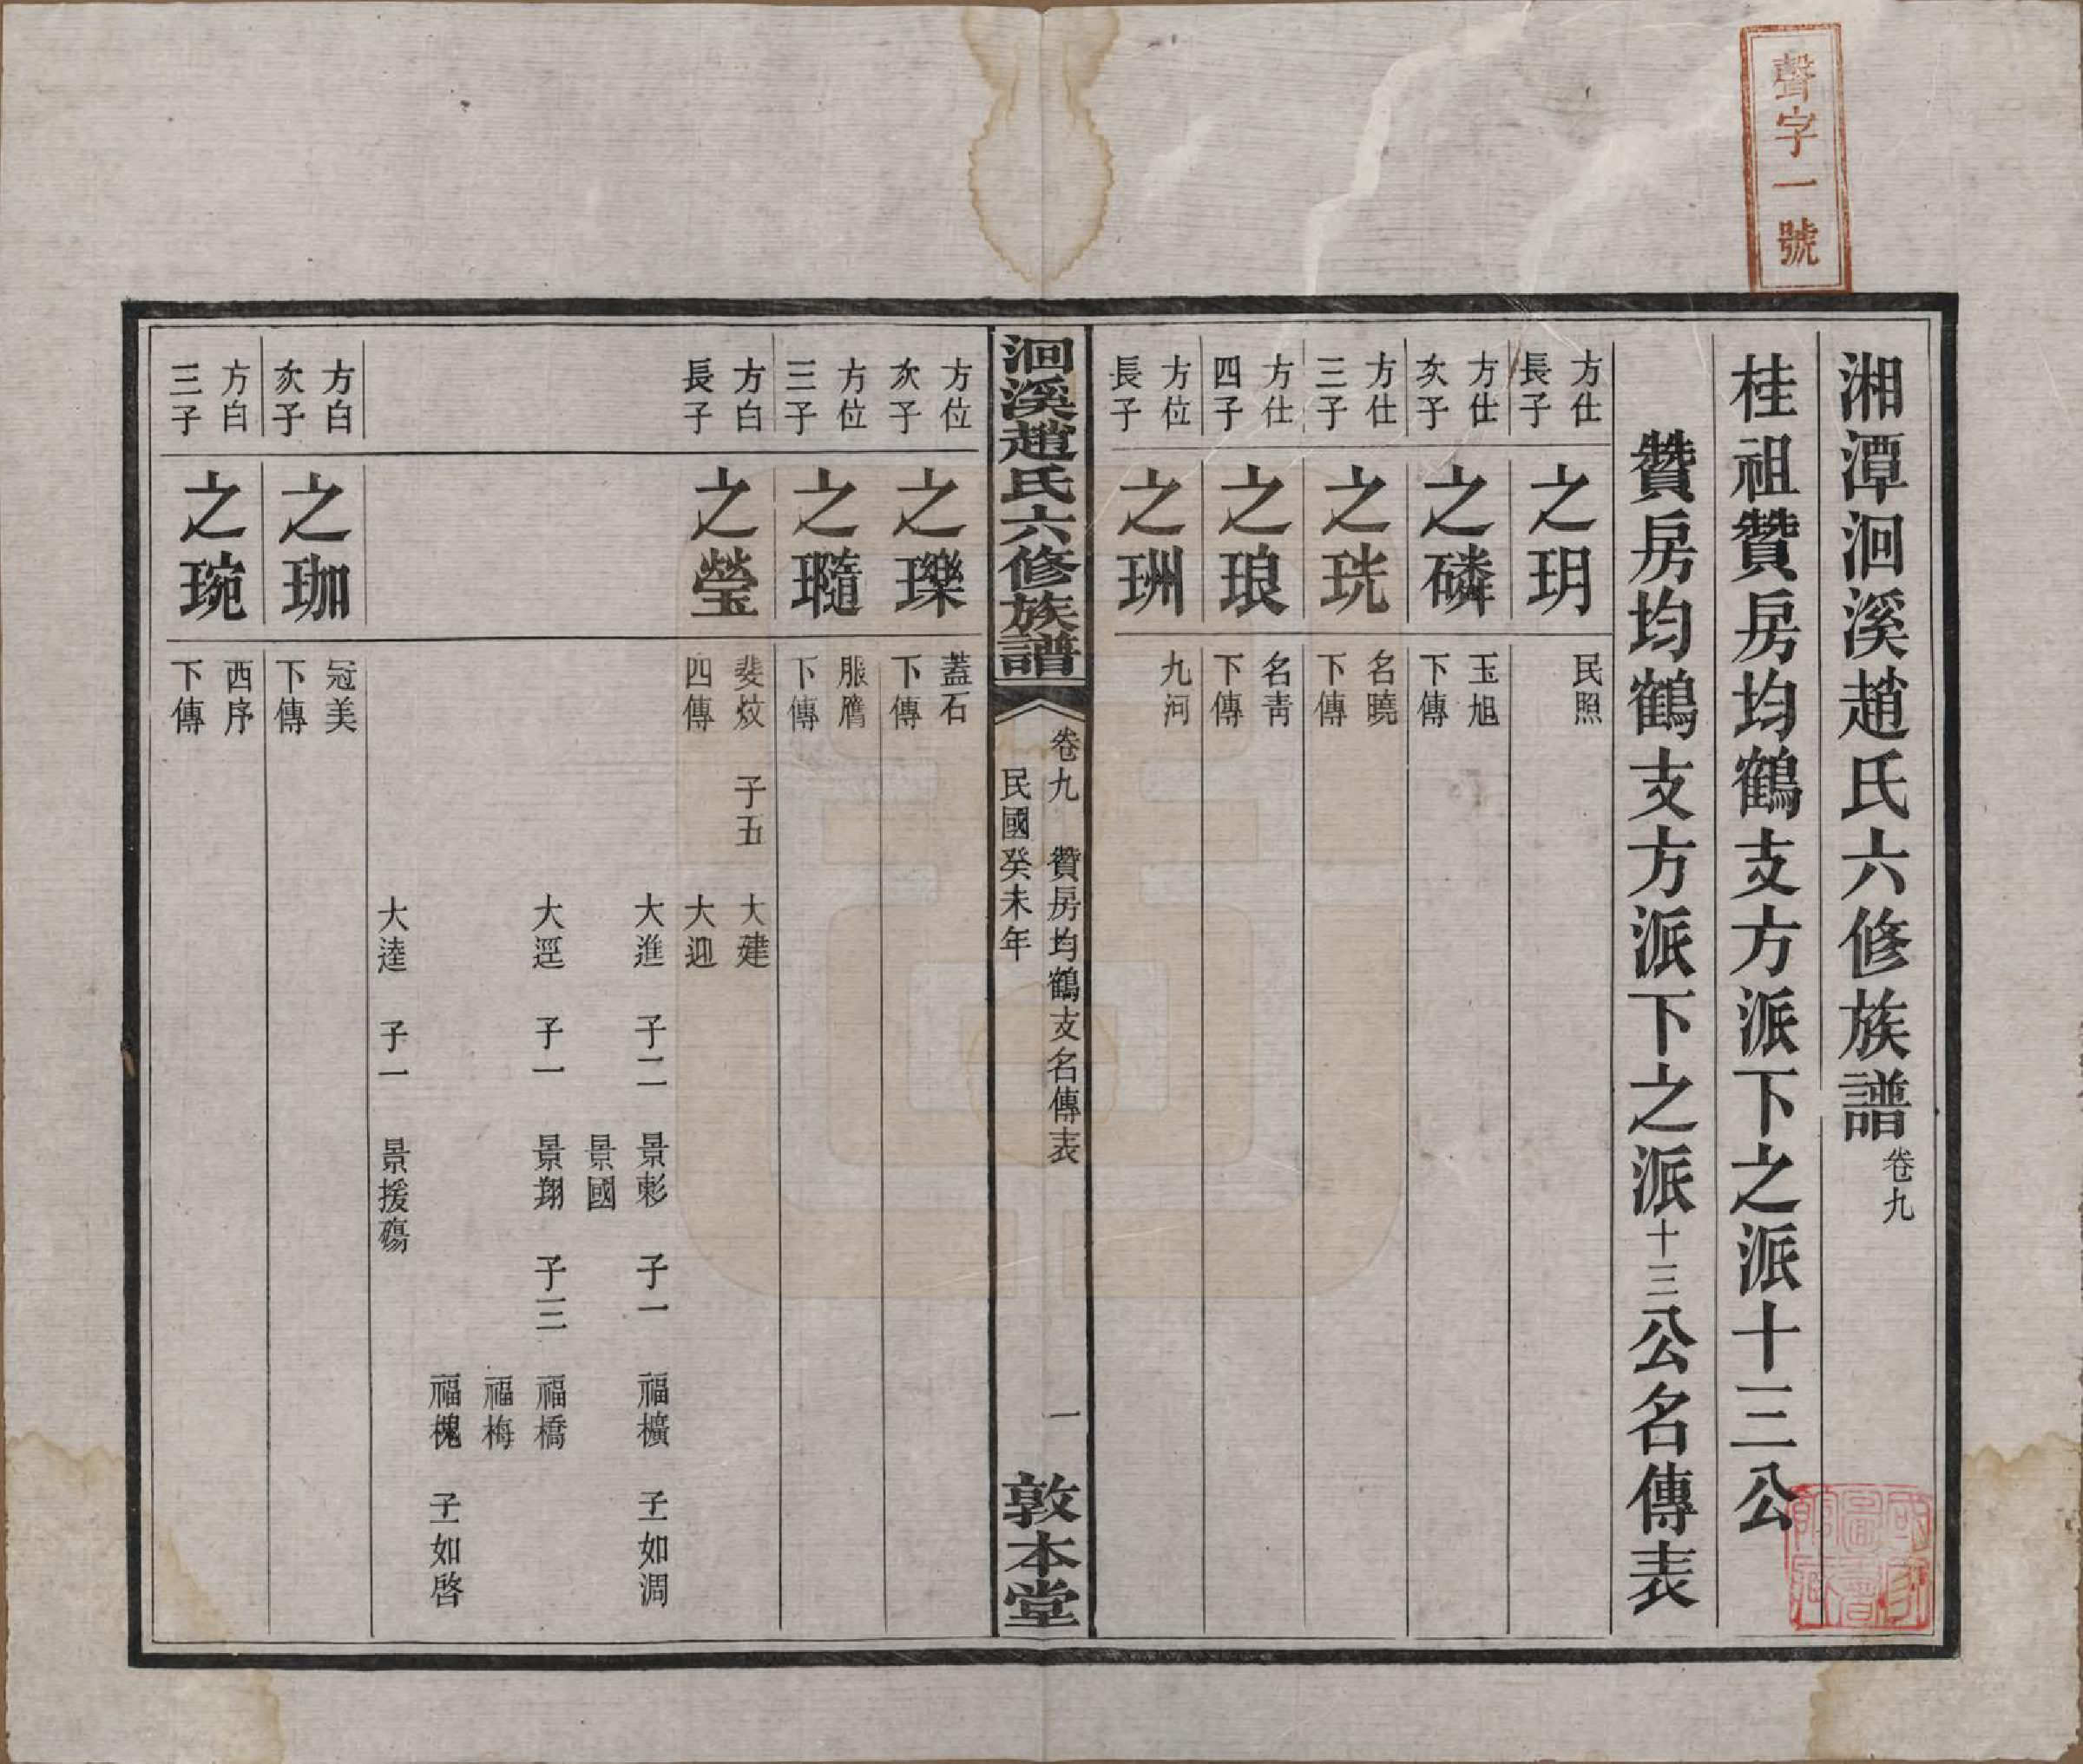 聲字一號
湘潭洄溪趙氏六修族譜 卷九
桂祖贊房均鶴支方派下之派十三公
贊房均鶴支方派下之派十三公名傳表
方仕長子 之玥 民照
方仕次子 之磷 玉旭下傳
方仕三子 之珖 名曉下傳
方仕四子 之琅 名靑下傳
方位長子 之珘 九河
洄溪趙氏六修族譜 卷九 贊房均鶴支名傳表 民國癸未年 一 敦本堂
方位次子 之瓅 蓋石下傳
方位三子 之瓍 服膺下傳
方白長子 之瑩 斐炆四傳 子五 大建
大迎
大進 子二 景彰 子一 福櫎 子一如澗
景國
大逕 子一 景翔 子三 福橋
福梅
福槐 子一如啓
大逵 子一 景援殤
方白次子 之珈 冠美下傳
方白三子 之琬 西序下傳
國家圖書館藏